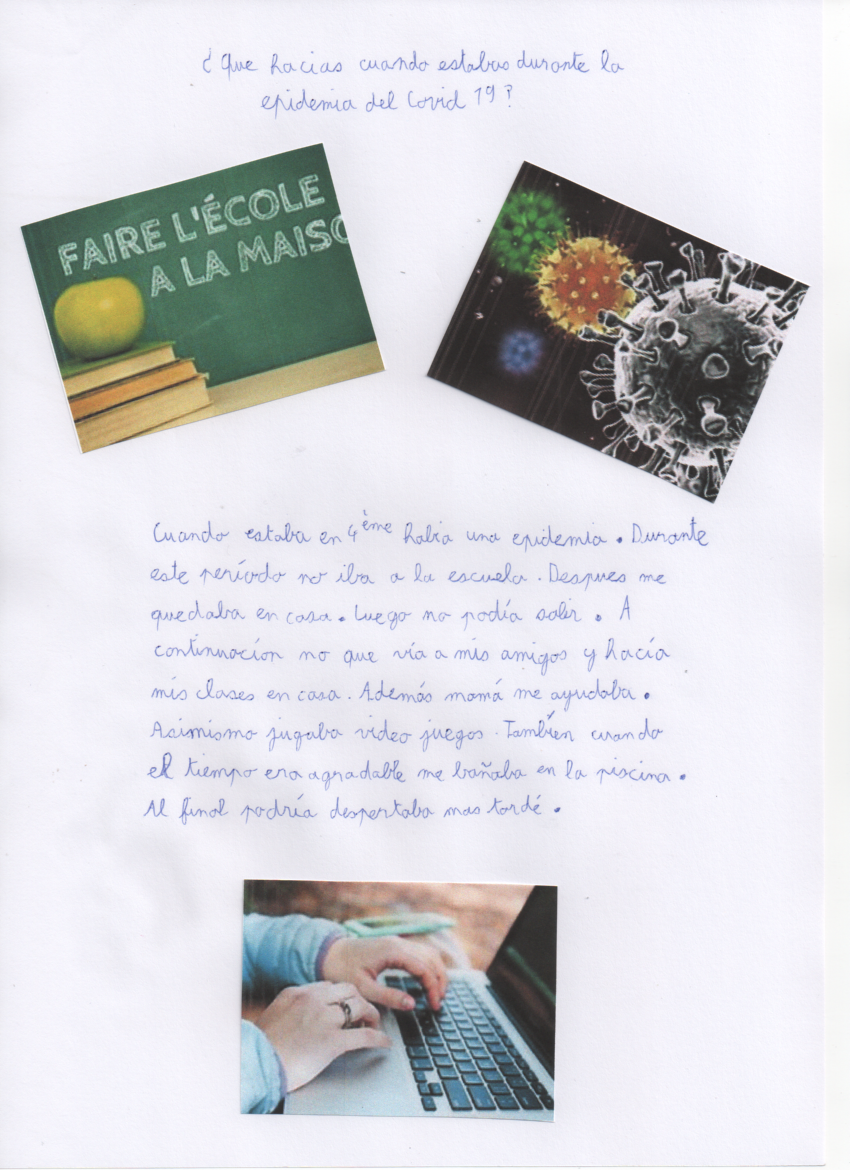 ¿ Que hacias cuando estabas durante la
epidemia del Covid 19 ?
FAIRE L'ÉCOLE
A LA MAISO
Cuando estaba en 4ème habia una epidemia. Durante
este período no iba a la escuela. Despues me
quedaba en casa. Luego no podía salir. A
continuacíon no que vía a mis amigos y hacía
mis clases en casa. Además mamá me ayudaba.
Asimismo jugaba video juegos. También cuando
el tiempo era agradable me bañaba en la piscina.
Al final podría despertaba mas tardé.